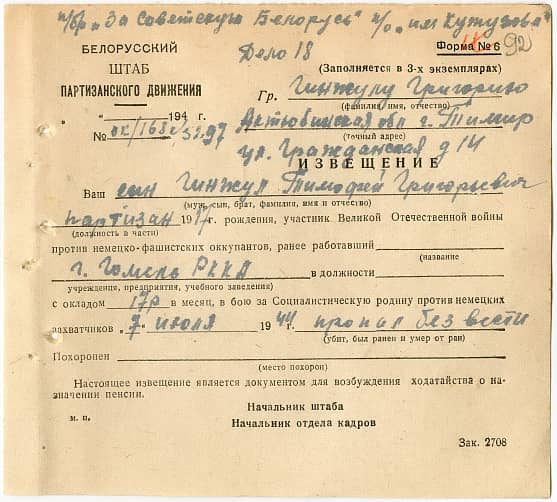 п/бр „За Советскую Белорусь“ п/о „им Кутузова“
Дело 18
Форма № 6
92
БЕЛОРУССКИЙ
ШТАБ
ПАРТИЗАНСКОГО ДВИЖЕНИЯ
(Заполняется в 3-х экземплярах)
Гр. Гинжулу Григорию
(фамилия, имя, отчество)
" " 194 г.
Актюбинская обл г. Темир
(точный адрес)
ул. Гражданская д 14
ИЗВЕЩЕНИЕ
Ваш сын Гинжул Тимофей Григорьевич
(муж, сын, брат, фамилия, имя и отчество)
партизан 1917 г. рождения, участник Великой Отечественной войны
(должность в части)
против немецко-фашистских оккупантов, ранее работавший
(название
г. Гомель РККА в должности
учреждения, предприятия, учебного заведения)
с окладом 17р в месяц, в бою за Социалистическую родину против немецких
захватчиков 7 июля 1944 г. пропал без вести
(убит, был ранен и умер от ран)
Похоронен
(место похорон)
Настоящее извещение является документом для возбуждения ходатайства о на-
значении пенсии.
Начальник штаба
м. п. Начальник отдела кадров
Зак. 2708